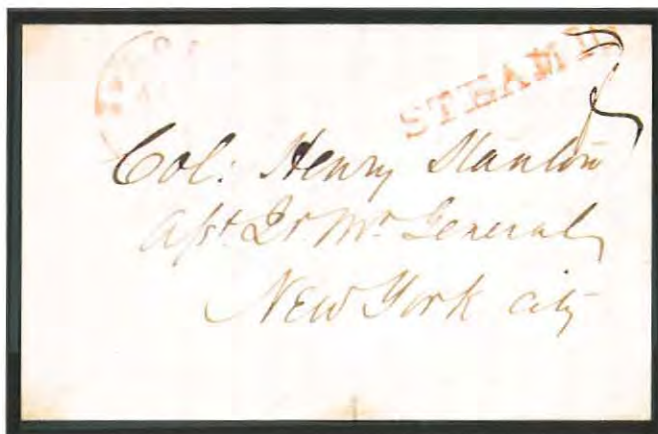 STEAM
Col: Henry Stanton
Asst Qr. Mr General
New York city